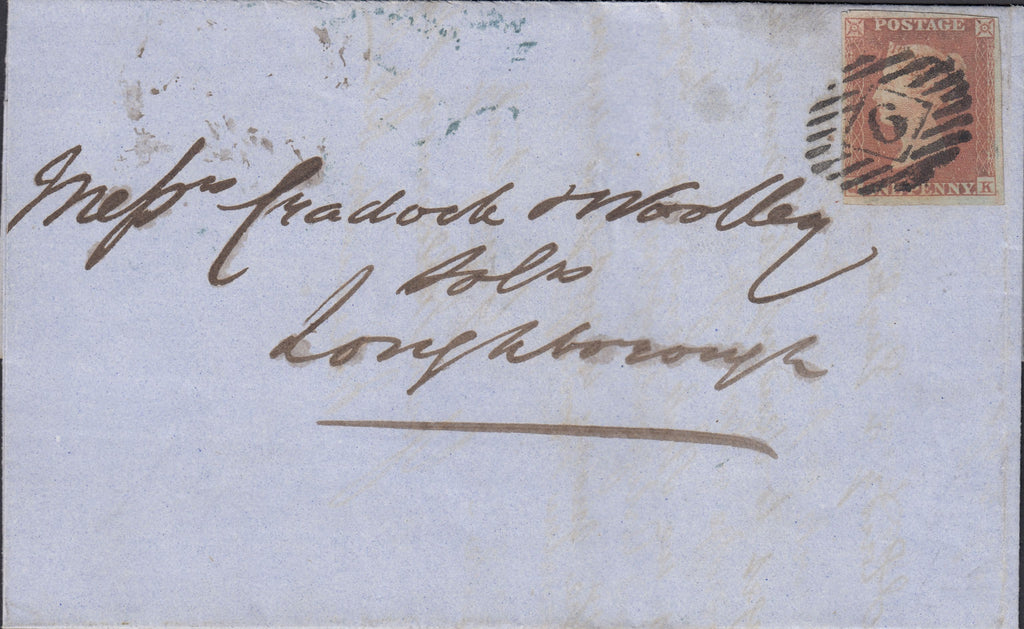 POSTAGE
6
PENNY K
Messrs Cradock & Woolley
Solrs
Loughborough